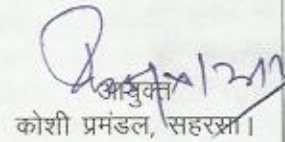 आयुक्त
कोशी प्रमंडल, सहरसा।